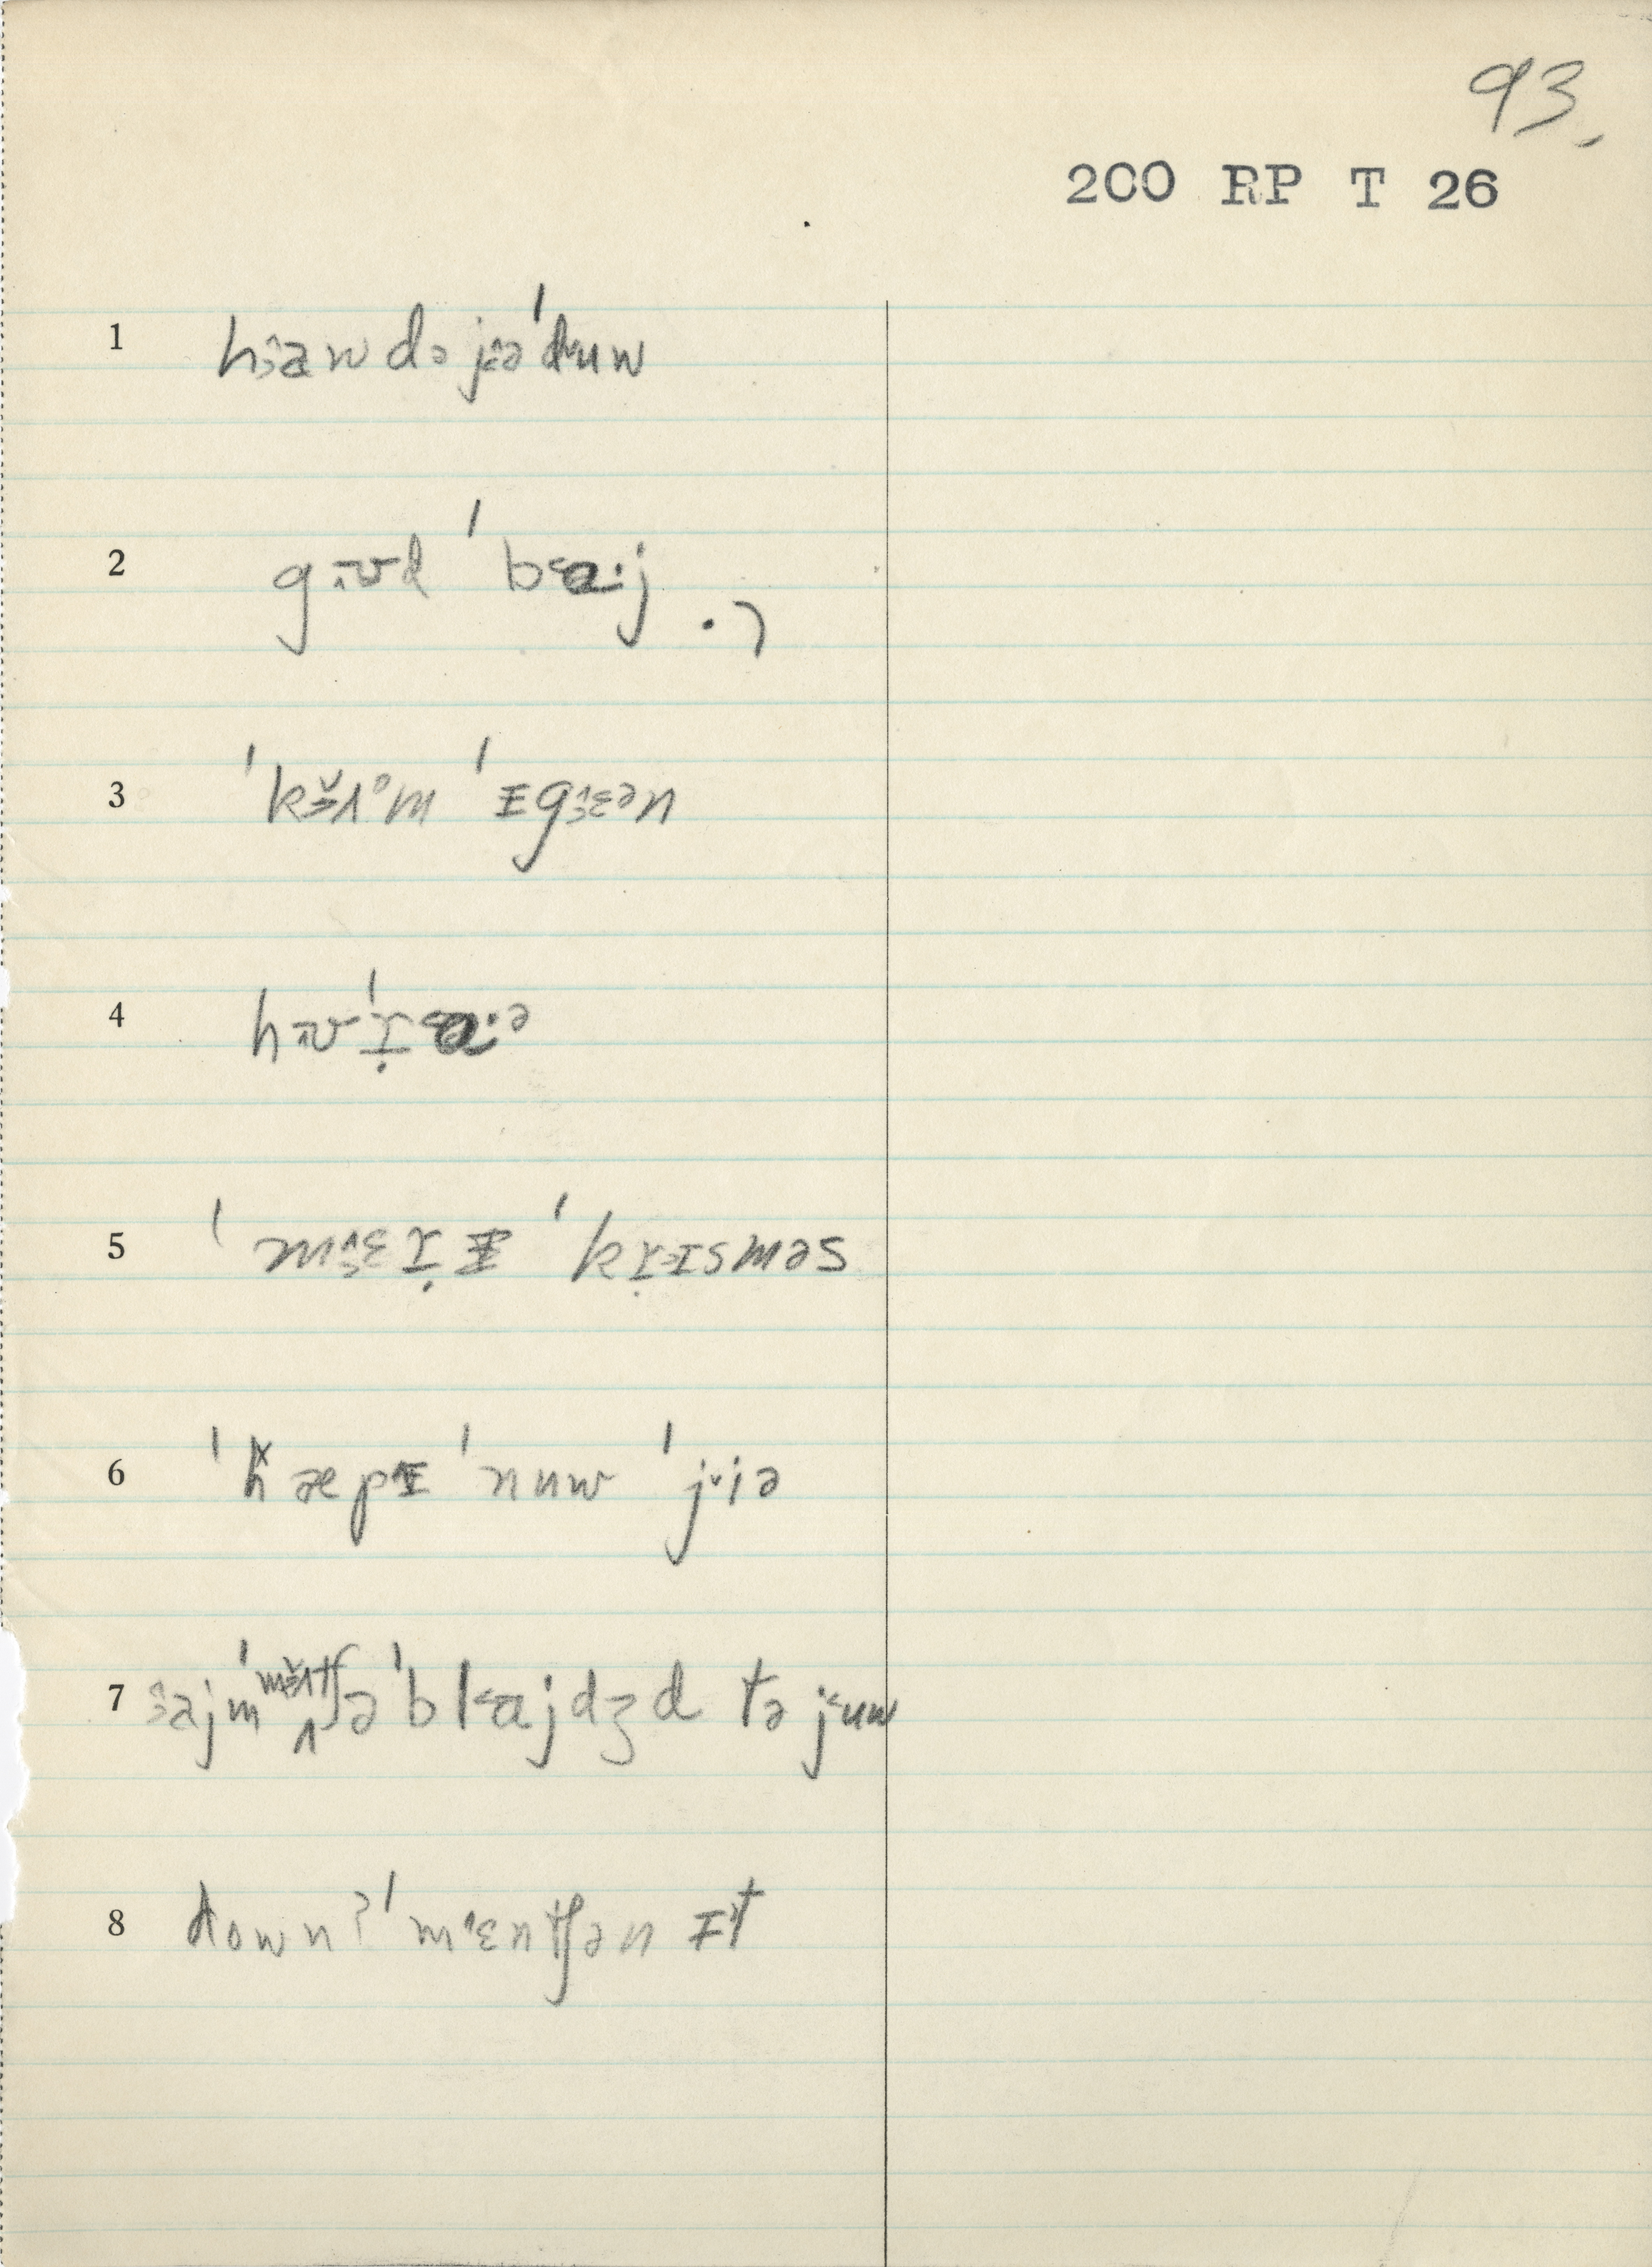 93.
200 RP T 26
1 haw də jə ˈduw
2 gʊd ˈbɑ·j .)
3 ˈkʌm ˈɪgɛən
4 hʊ ˈɹ̣ɑ·ə
5 ˈmɛɹ̣ɪ ˈkɹ̣ɪsməs
6 ˈhæpɪ ˈnuw ˈjiə
7 ajm ˈmʌtʃ ə ˈblajdʒd tə juw
8 downʔ ˈmɛntʃən ɪt